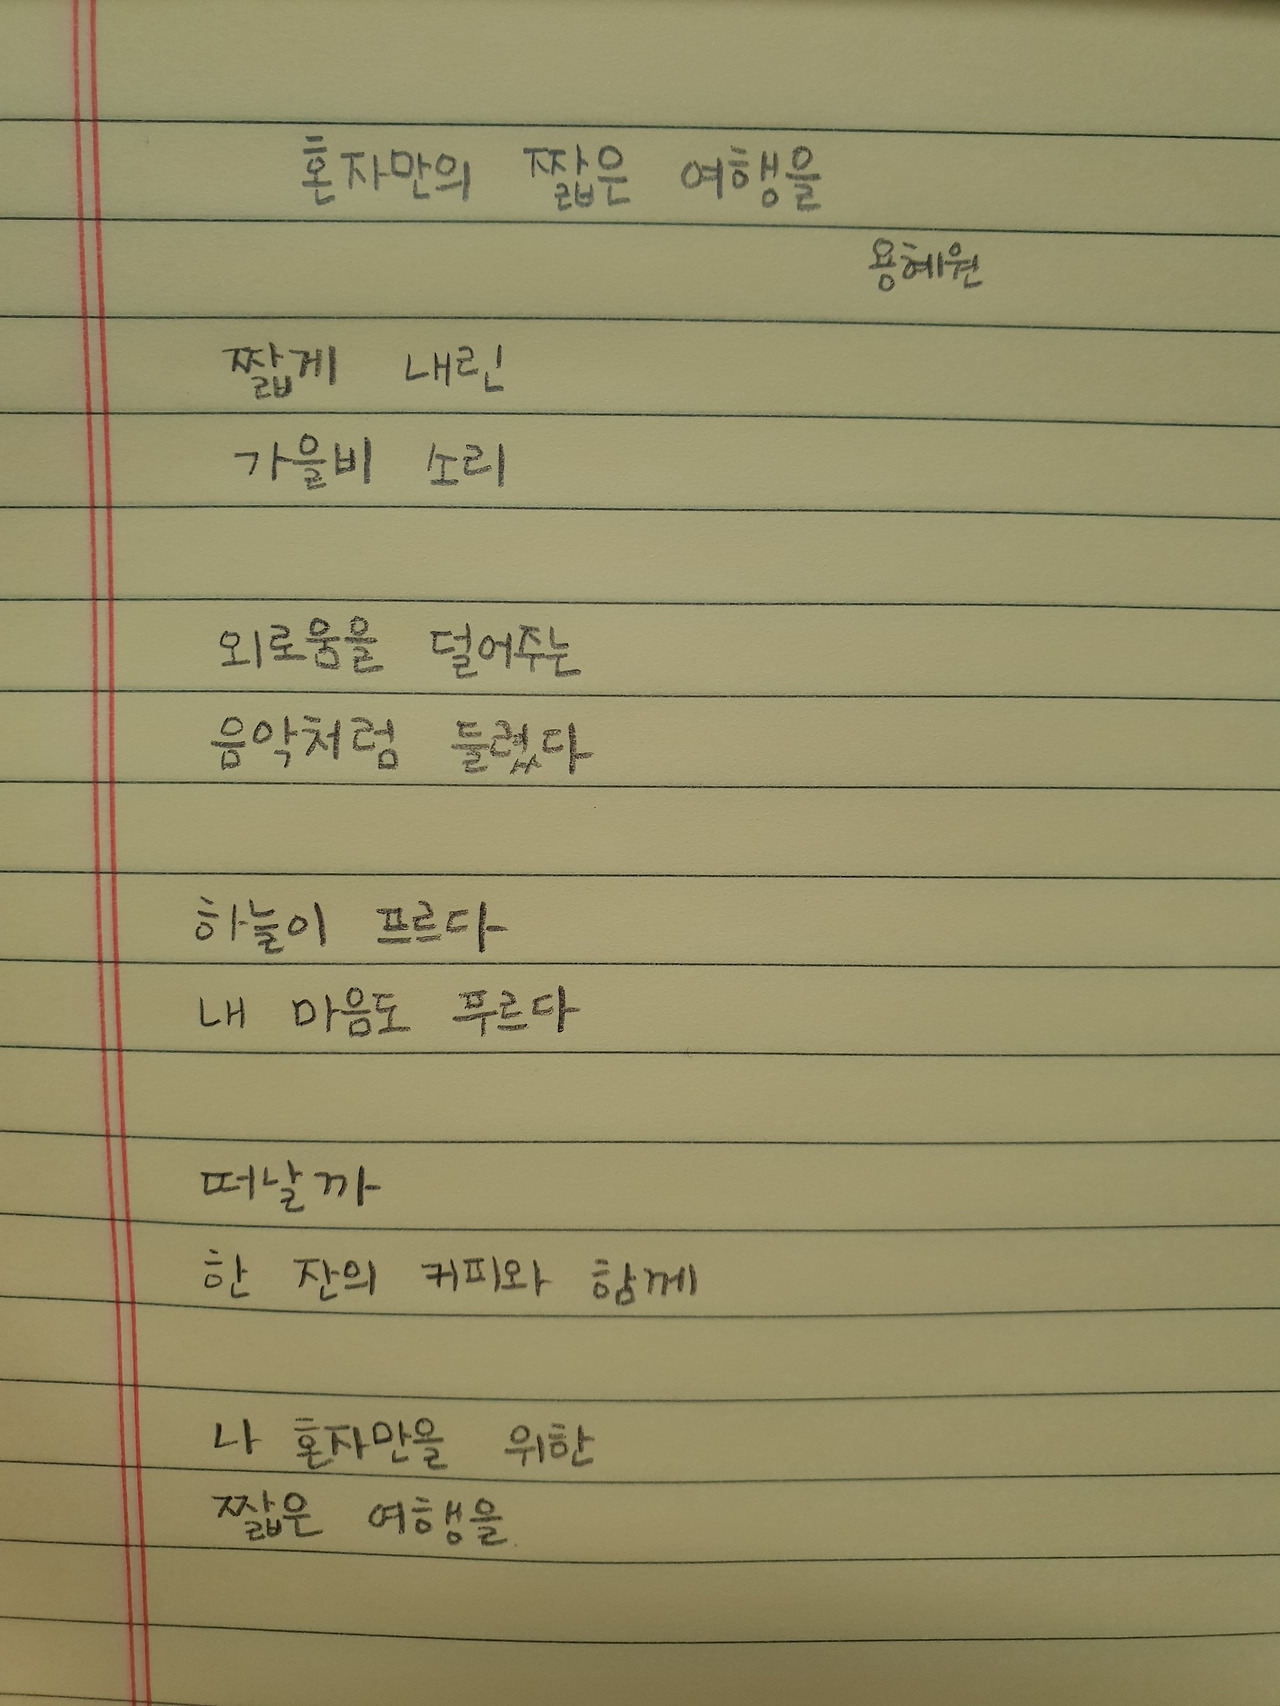 혼자만의 짧은 여행을
용혜원
짧게 내린
가을비 소리
외로움을 덜어주는
음악처럼 들렸다
하늘이 프르다
내 마음도 푸르다
떠날까
한 잔의 커피와 함께
나 혼자만을 위한
짧은 여행을.